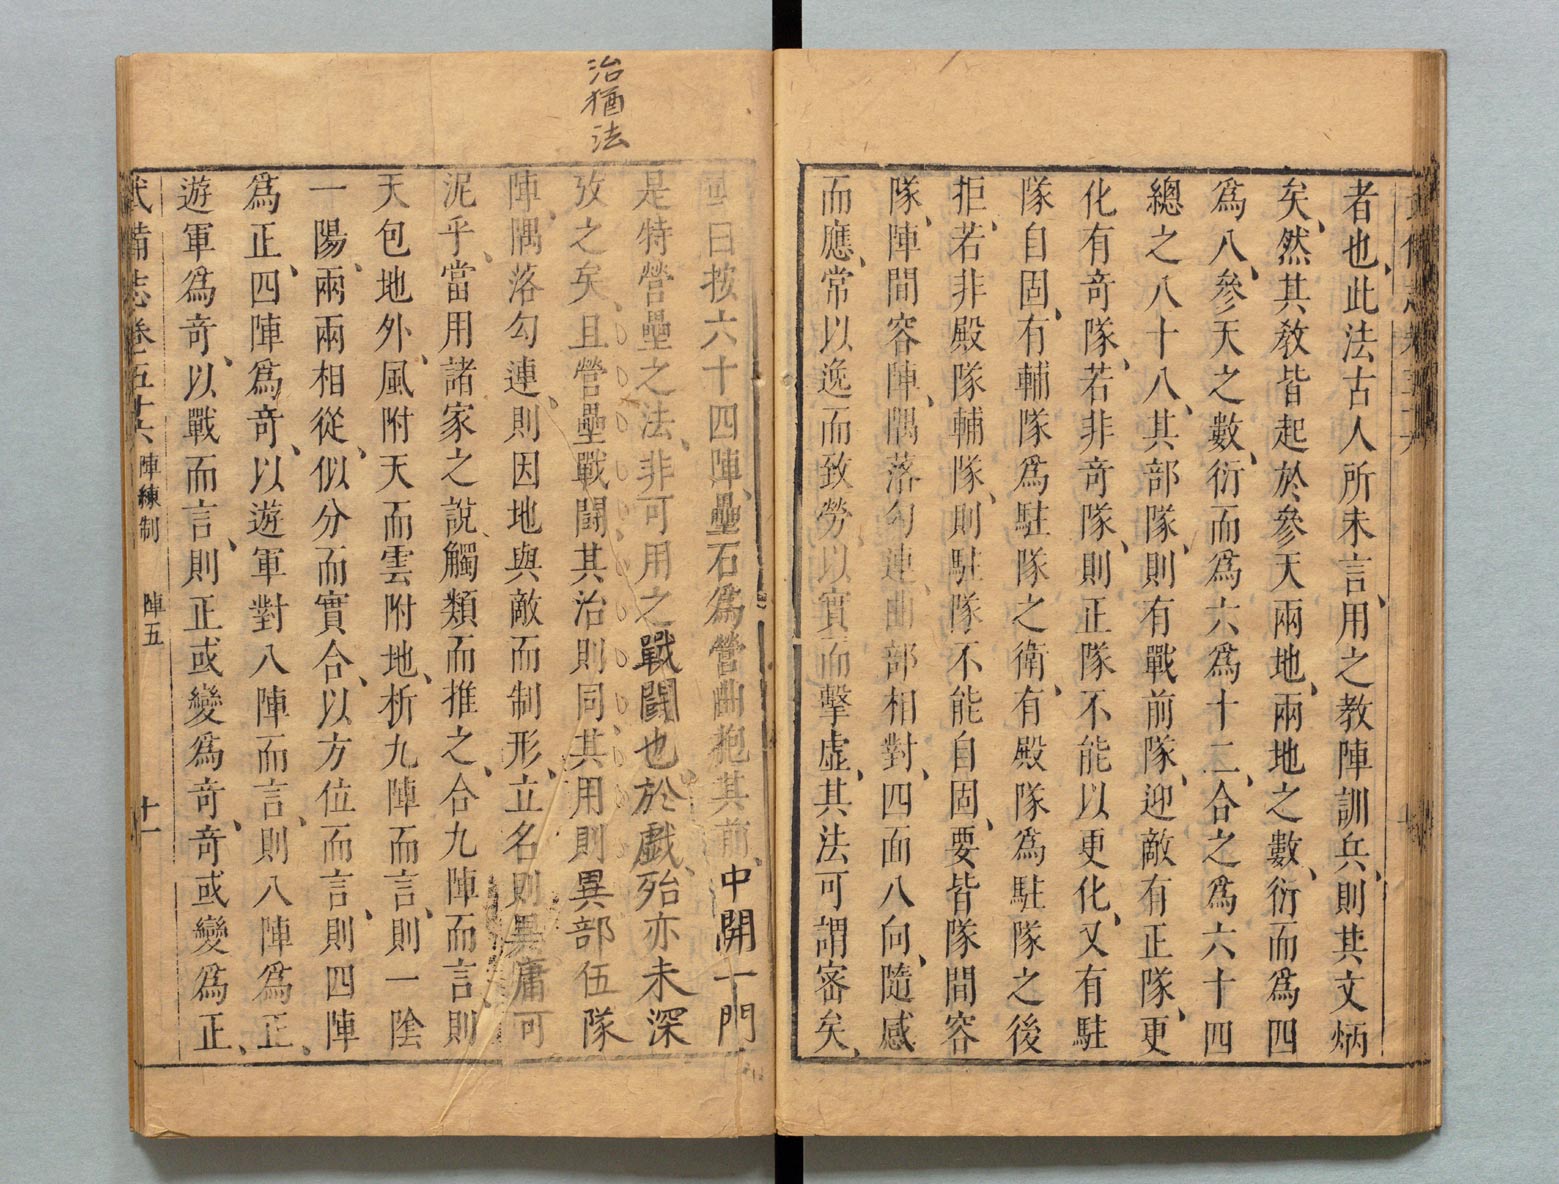 者也、此法古人所未言、用之教陣訓兵、則其文炳
矣、然其敎皆起於參天兩地、兩地之數、衍而爲四
爲八、參天之數、衍而爲六爲十二、合之爲六十四
總之八十八、其部隊、則有戰前隊、迎敵有正隊、更
化有奇隊、若非奇隊、則正隊不能以更化、又有駐
隊自固、有輔隊爲駐隊之衛、有殿隊爲駐隊之後
拒、若非殿隊輔隊、則駐隊不能自固、要皆隊間容
隊、陣間容陣、隅落勾連、曲部相對、四面八向、隨感
而應、常以逸而致勞、以實而擊虛、其法可謂審矣、
曰按六十四陣、壘石爲營、曲抱其前、中開一門
是特營壘之法、非可用之戰鬪也於戲、殆亦未深
攷之矣、且營壘戰鬪其治則同、其用則異部伍隊
陣、隅落勾連、則因地與敵而制形、立名則異庸可
泥乎、當用諸家之說、觸類而推之、合九陣而言、則
天包地外、風附天而雲附地、析九陣而言、則一陰
一陽、兩兩相從、似分而實合、以方位而言、則四陣
爲正、四陣爲奇、以遊軍對八陣而言、則八陣爲正、
遊軍爲奇、以戰而言、則正或變爲奇、奇或變爲正、
武備志卷五十六 陣練制 陣五 十一
治猶法